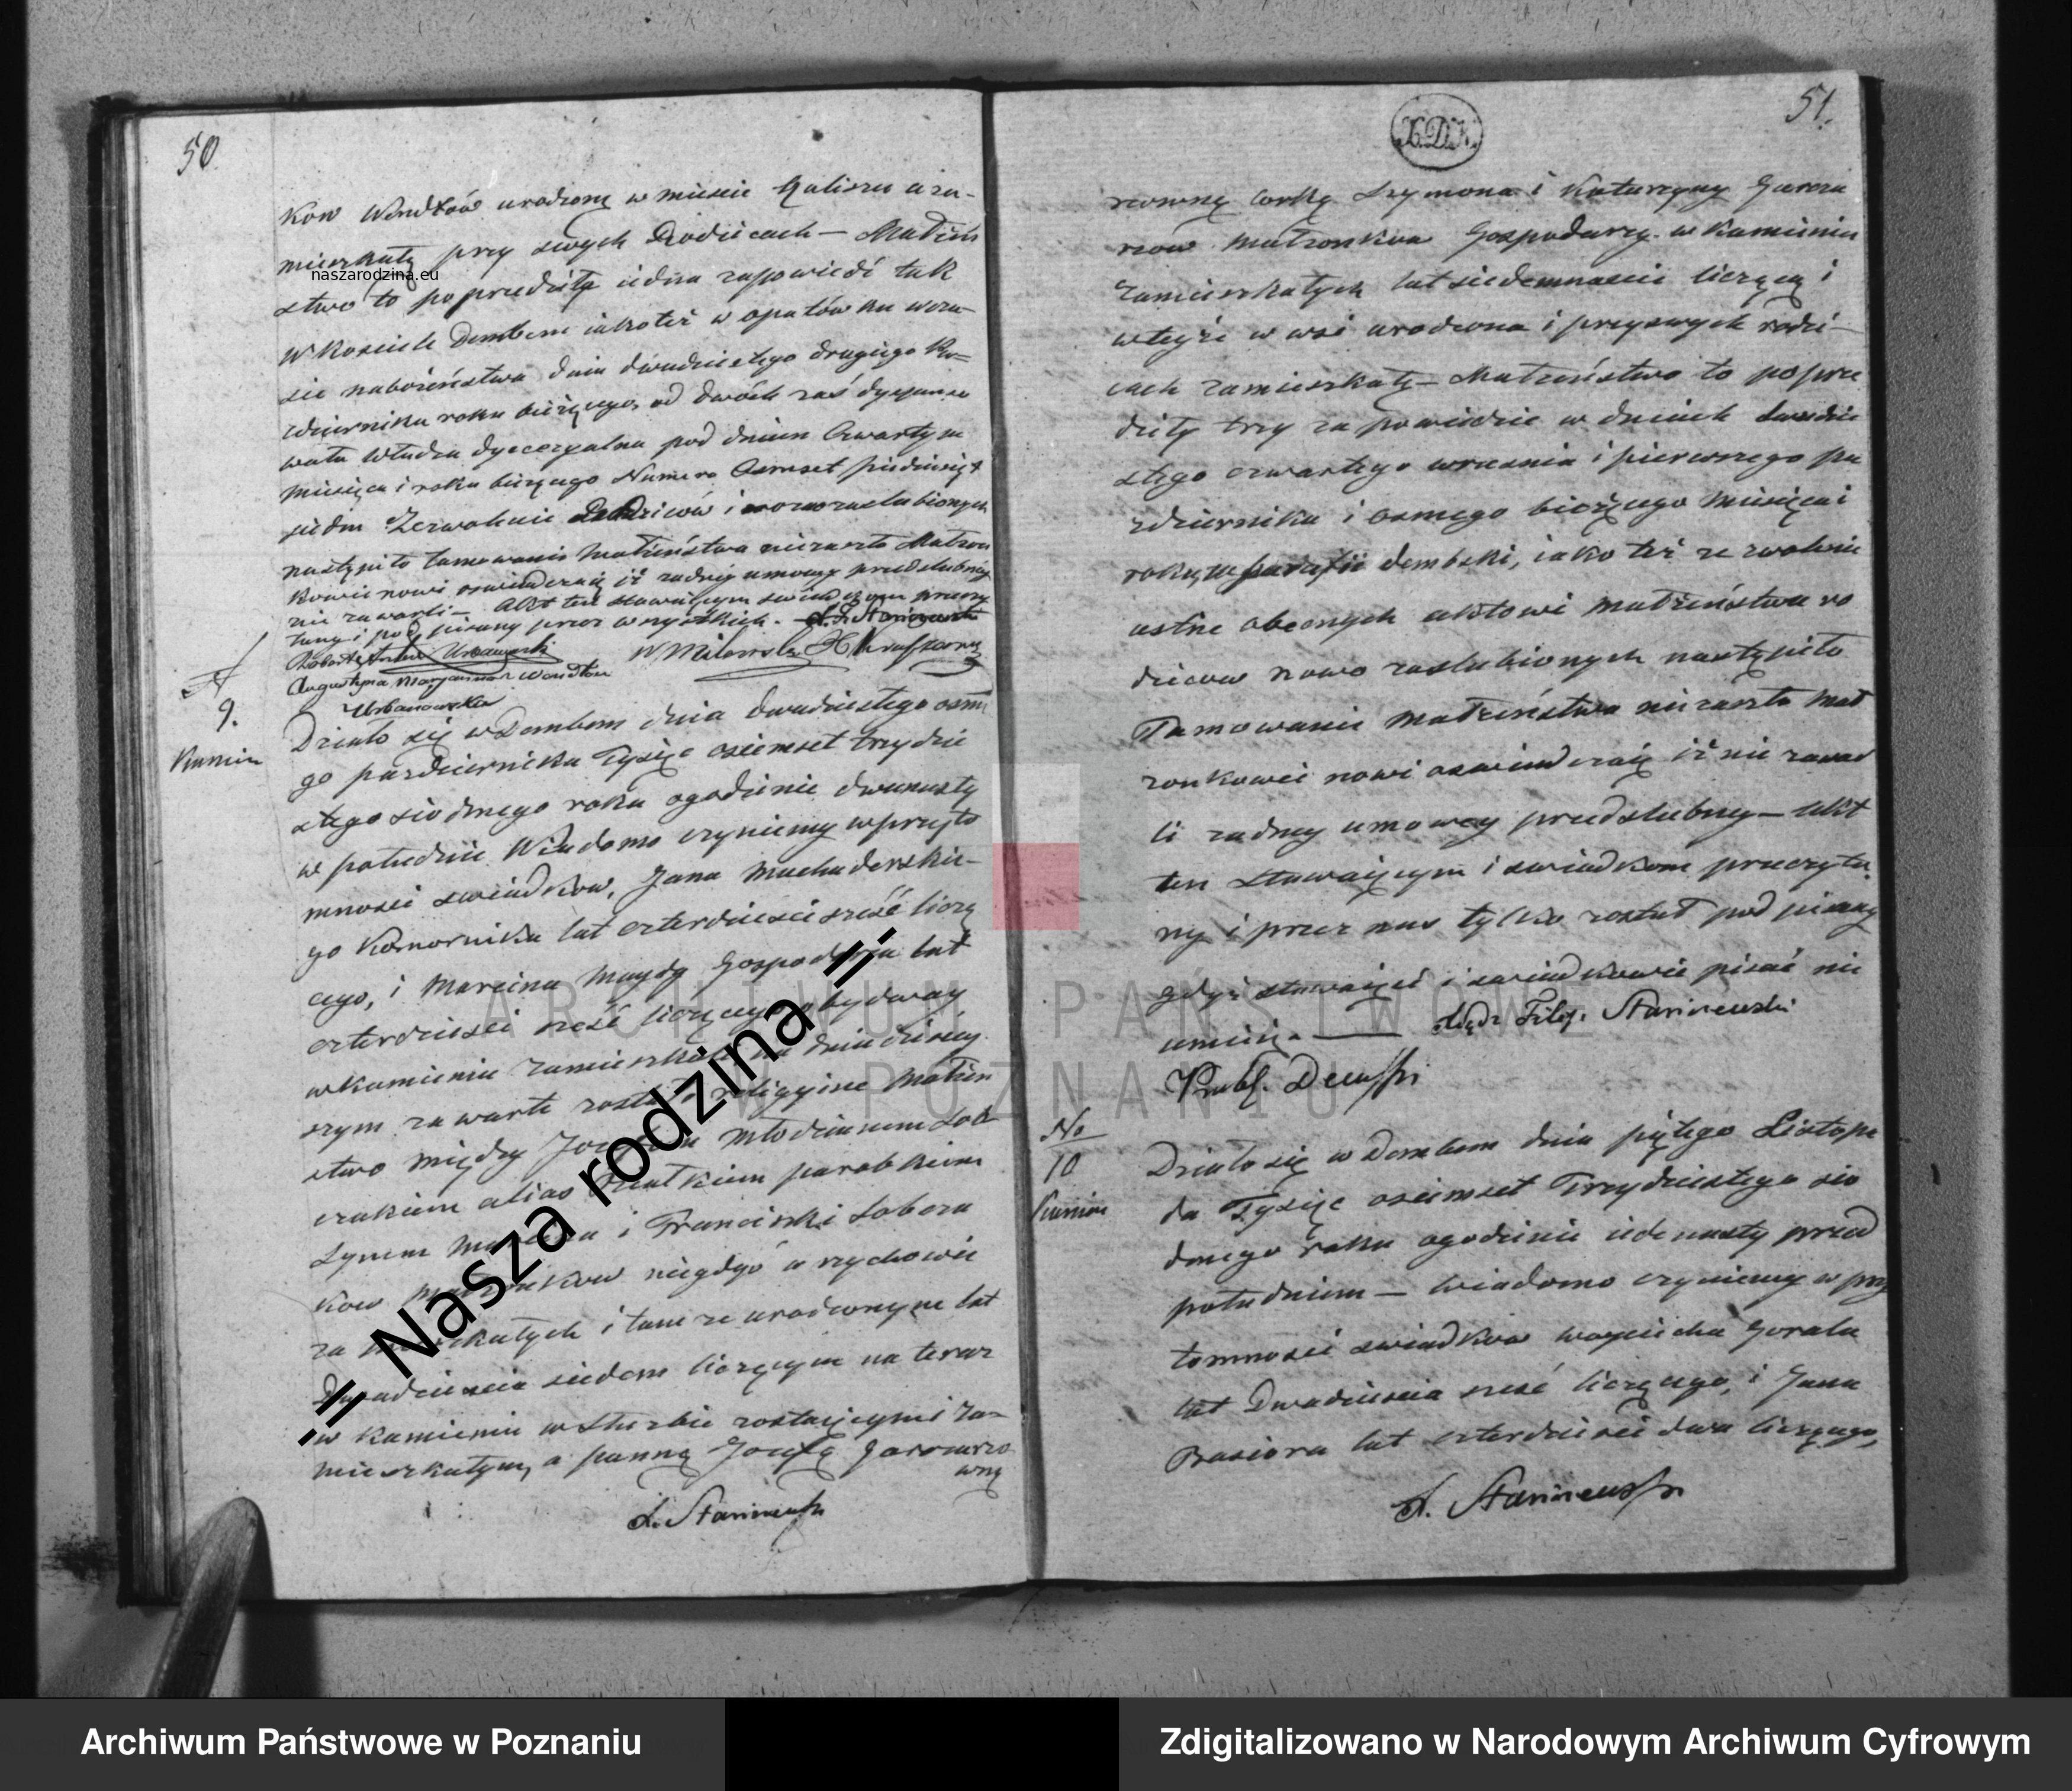 50
kow Wendtów urodzoną w mieście Kaliszu a za-
mieszkałą przy swych Rodzicach — Małżeń
naszarodzina.eu
stwo to poprzedziła iedna zapowiedź tak
w Kościele Dembem iakoteż w opatówku w cza-
sie nabożeństwa dnia dwudziestego drugiego Pa-
zdziernika roku bieżącego, od dwóch zaś dyspenso
wała Władza dyecezyalna pod dniem Czwartym
miesiąca i roku bieżącego Numero Osmset piedziesiąt
siedm Zezwolenie i nowozaslubionych
nastąpiło tamowanie Małżeństwa niezaszło Małżon
kowie nowi oswiadczaią iż zadnéj umowy przedslubnéj
nie zawarli — Akt ten stawaiącym swiadkom przeczy
tany i podpisany przez wszystkich.
Augustyna Maryanna Wendtów
Urbanowska
N
9.
Kamień
Działo się w Dembem dnia dwudziestego osme
go pazdziernika Tysiąc osiemset trzydzie
stego siodmego roku ogodzinie dwunasty
w południe Wiadomo czyniemy wprzyto
mnosci swiadków, Jana Muchaderskie-
go Komornika lat czterdziesci sześć liczą
cego, i Marcina Maydy Gospodarza lat
czterdziesci sześć liczącego obydway
w kamieniu zamieszkali na dniu dzisiey
szym zawarte zostało religyine Małżen
stwo między Jozefem Młodzianem Łob
czakiem alias parobkiem
Synem i Franciszki Łobcza
kow Małżonkow niegdyś w rychowie
zamieszkałych i tamze urodzonym lat
Dwadziescia siedem liczącym na teraz
w kamieniu w Służbie zostaiącym i za-
mieszkałym, a panną Jozefą Garncarzo
wną
X. Stariszewski
-= Nasza rodzina =-
51.
K.D.K.
rzowną Corką Szymona i Katarzyny Garnca
rzów Małżonków Gospodarzy w Kamieniu
Zamieszkałych lat siedemnascie liczącą i
wteyże w wsi urodzona i przyswych rodzi-
cach zamieszkałą — Małżeństwo to poprze
dziły trzy zapowiedzie w dniach dwudzie
stego czwartego wrzesnia i pierwszego pa
zdziernika i osmego bieżącego Miesiąca i
roku, w parafii dembski, iako też zezwolenie
ustne obecnych aktowi Małżeństwa ro
dziców nowo zaslubionych nastąpiło
Tamowanie Małżeństwa niezaszło Mał
zonkowie nowi oswiadczaią iż nie zawar
li zadney umowey przedslubney — Akt
ten Stawaiącym i swiadkom przeczyta
ny i przez nas tylko został podpisany
gdyż stawaiący i swiadkowie pisać nie
umieią. — Xiądz Filip.
Prob.
No
10
Kamień
Działo się w Dembem dnia piątego Listopa
da Tysiąc osiemset Trzydziestego sio
dmego roku ogodzinie iedenasty przed
południem — Wiadomo czyniemy w przy
tomności swiadków woyciecha Gorala
lat Dwadziescia sześć liczącego, i Jana
Basiora lat czterdziesci dwa liczącego,
X. Stariszewski
ARCHIWUM PAŃSTWOWE
W POZNANIU
Archiwum Państwowe w Poznaniu
Zdigitalizowano w Narodowym Archiwum Cyfrowym